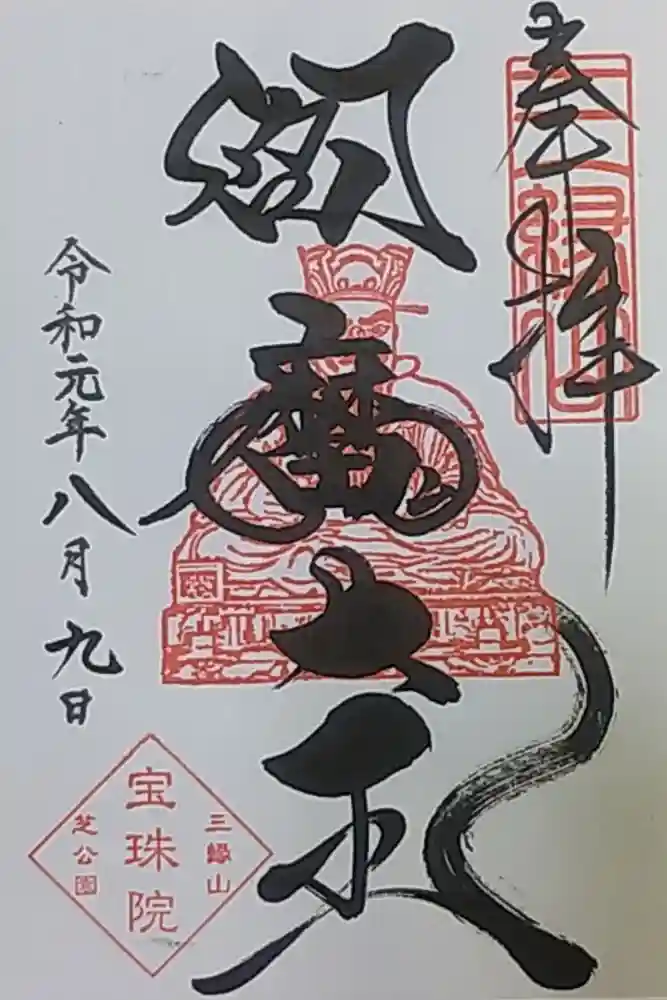 奉拝
三縁山
閻魔大王
令和元年八月九日
三縁山
宝珠院
芝公園